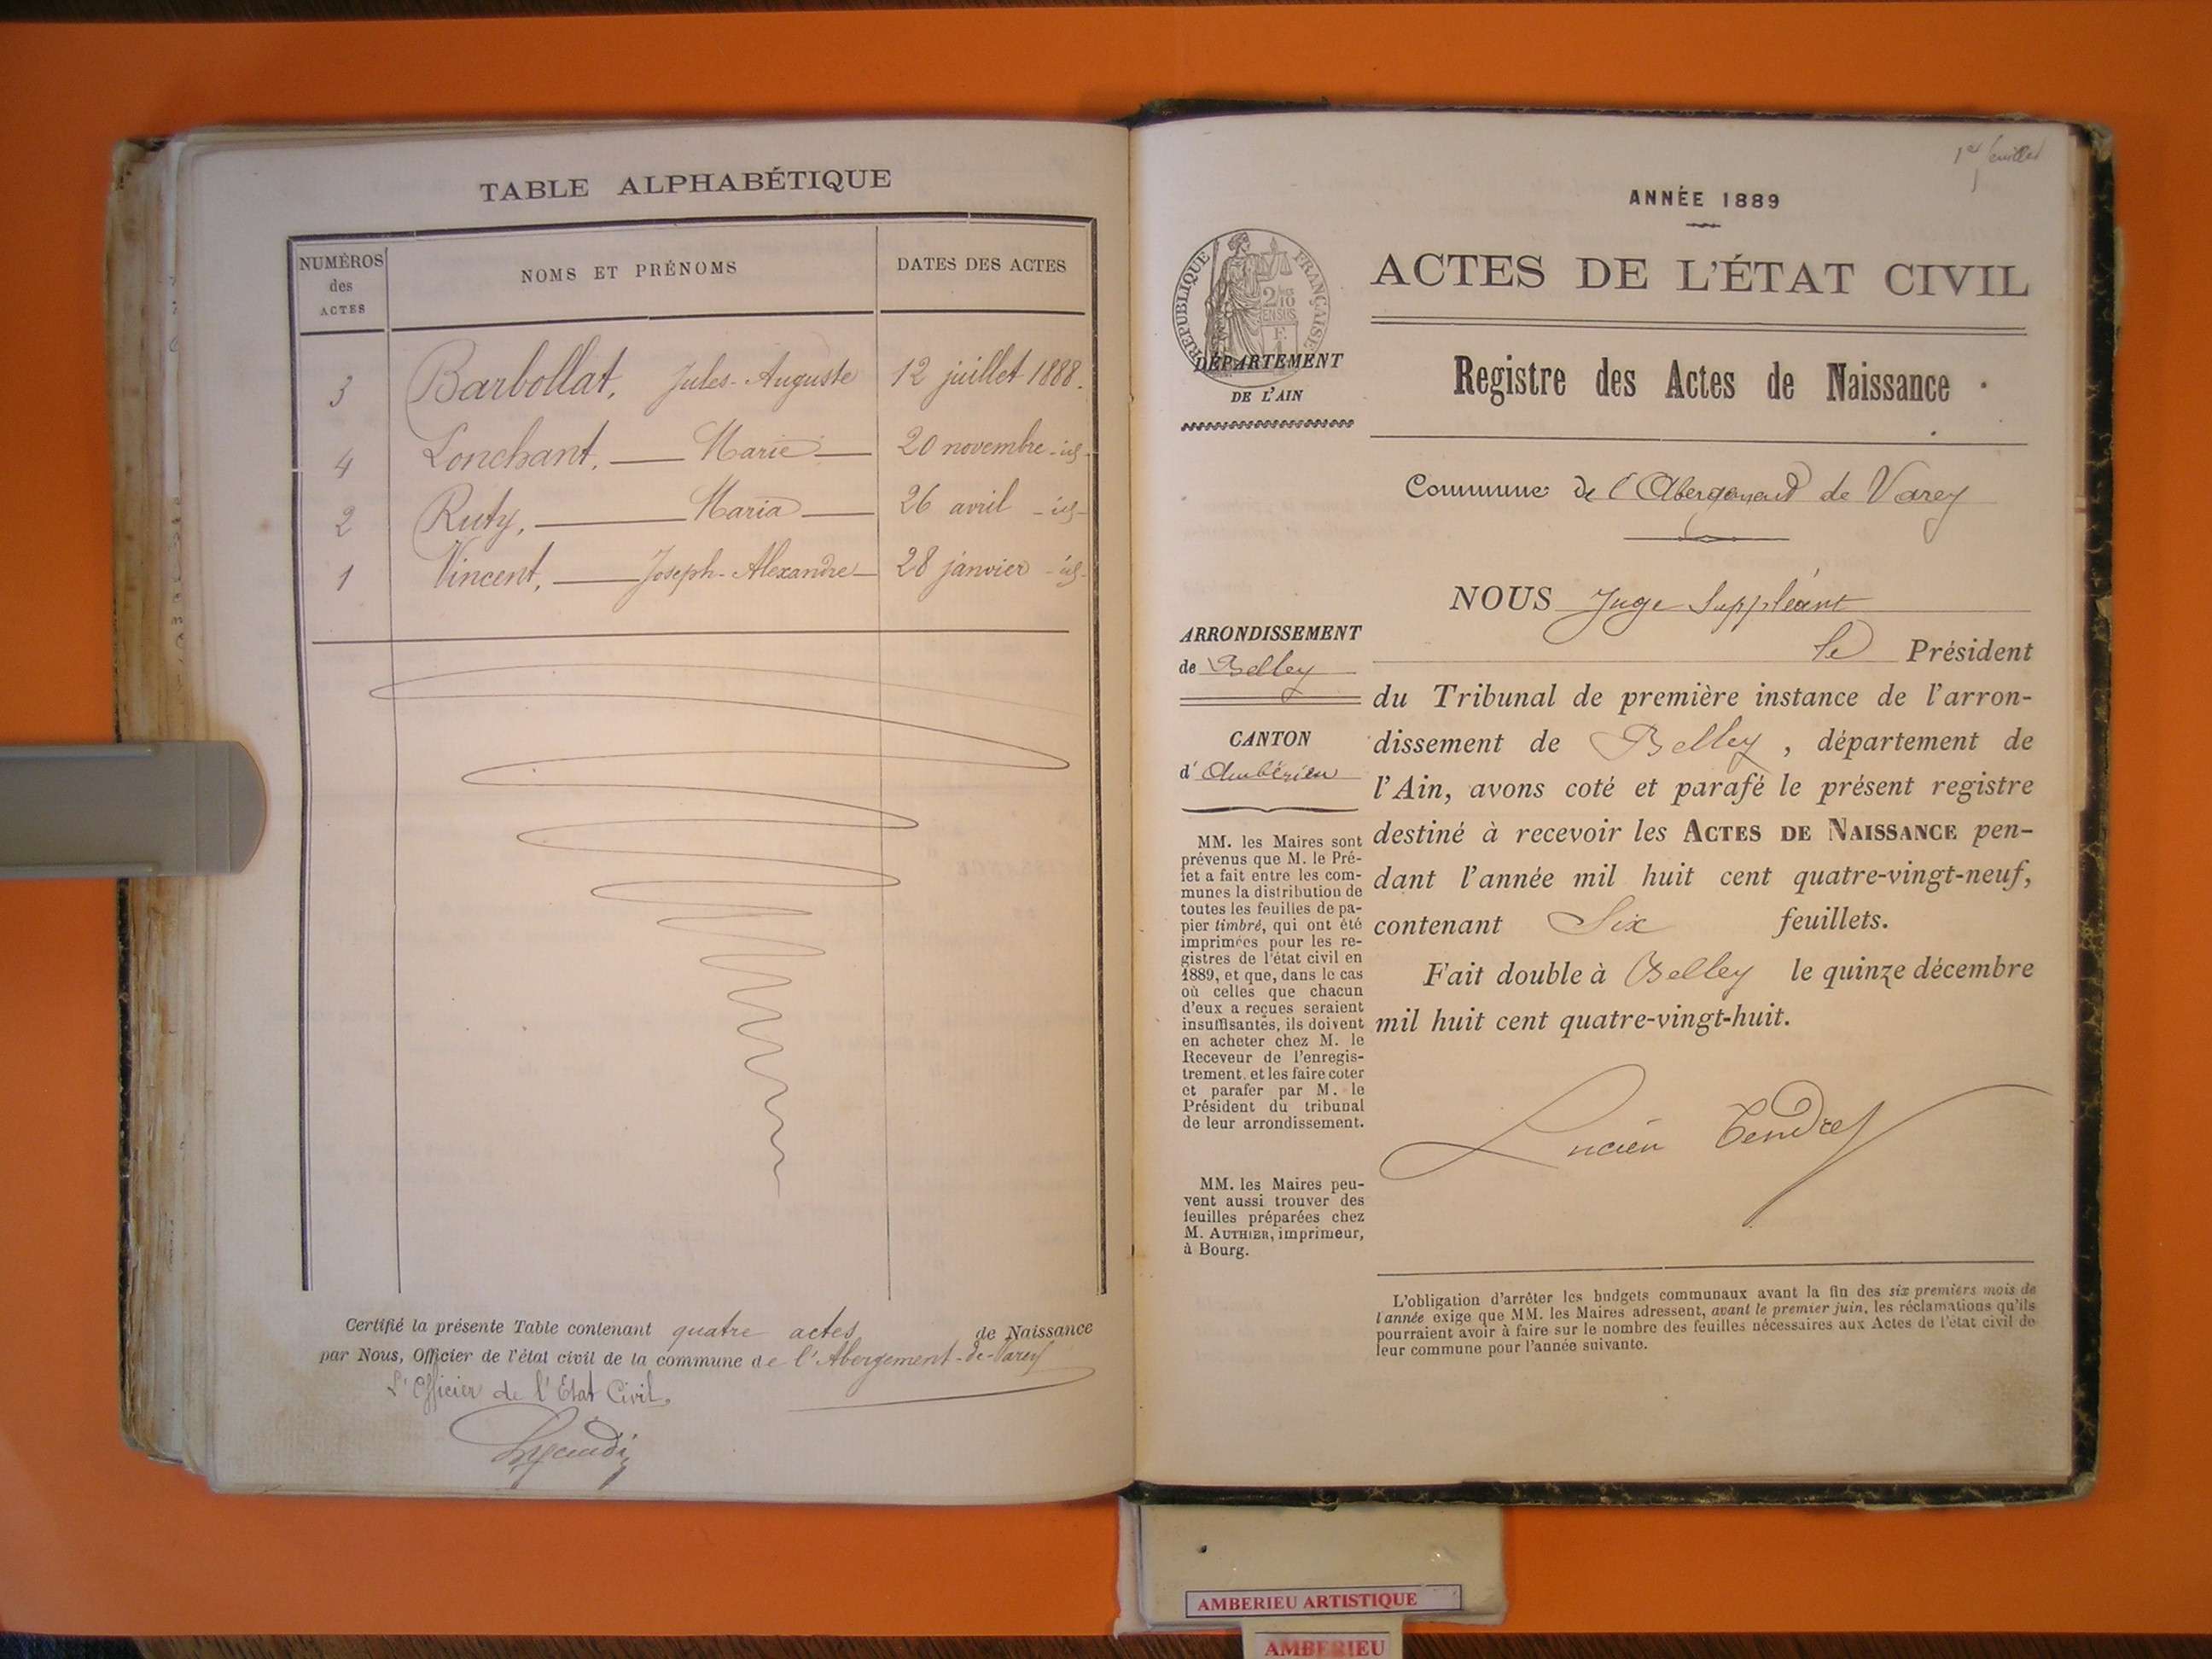 TABLE ALPHABÉTIQUE
NUMÉROS
des
ACTES
NOMS ET PRÉNOMS
DATES DES ACTES
3 Barbollat, Jules-Auguste 12 juillet 1888.
4 Lonchant, Marie 20 novembre - id -
2 Ruty, Maria 26 avril - id -
1 Vincent, Joseph-Alexandre 28 janvier - id -
Certifié la présente Table contenant quatre actes de Naissance
par Nous, Officier de l'état civil de la commune de l'Abergement-de-Varey
L'Officier de l'Etat Civil,
1er feuillet
ANNÉE 1889
ACTES DE L'ÉTAT CIVIL
RÉPUBLIQUE FRANÇAISE
2/10 EN SUS
DÉPARTEMENT
DE L'AIN
Registre des Actes de Naissance
Commune de l'Abergement de Varey
NOUS Juge Suppléant
le Président
du Tribunal de première instance de l'arron-
dissement de Belley, département de
l'Ain, avons coté et parafé le présent registre
destiné à recevoir les ACTES DE NAISSANCE pen-
dant l'année mil huit cent quatre-vingt-neuf,
contenant Six feuillets.
Fait double à Belley le quinze décembre
mil huit cent quatre-vingt-huit.
Lucien Tendret
ARRONDISSEMENT
de Belley
CANTON
d'Ambérieu
MM. les Maires sont
prévenus que M. le Pré-
fet a fait entre les com-
munes la distribution de
toutes les feuilles de pa-
pier timbré, qui ont été
imprimées pour les re-
gistres de l'état civil en
1889, et que, dans le cas
où celles que chacun
d'eux a reçues seraient
insuffisantes, ils doivent
en acheter chez M. le
Receveur de l'enregis-
trement, et les faire coter
et parafer par M. le
Président du tribunal
de leur arrondissement.
MM. les Maires peu-
vent aussi trouver des
feuilles préparées chez
M. AUTHIER, imprimeur,
à Bourg.
L'obligation d'arrêter les budgets communaux avant la fin des six premiers mois de
l'année exige que MM. les Maires adressent, avant le premier juin, les réclamations qu'ils
pourraient avoir à faire sur le nombre des feuilles nécessaires aux Actes de l'état civil de
leur commune pour l'année suivante.
AMBERIEU ARTISTIQUE
AMBERIEU